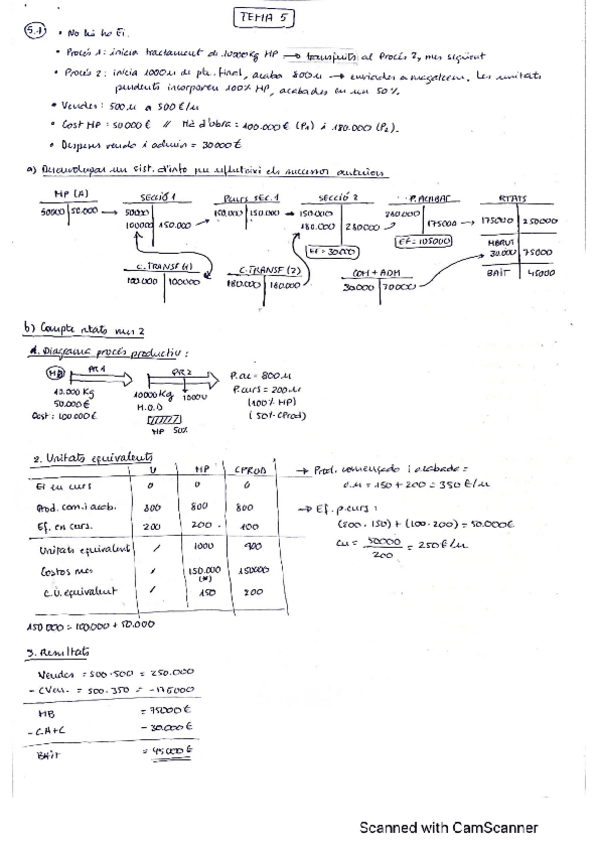 TEMA 5
5.1 • No hi ha Ei.
• Procés 1: inicia tractament de 10000 Kg MP → transferits al Procés 2, mes següent
• Procés 2: inicia 1000 u de pdte. final, acaba 800 u → enviades a magatzem. Les unitats
pendents incorporen 100% MP, acabades en un 50%.
• Vendes: 500 u a 500 €/u
• Cost MP = 50000 € // Mà d'obra = 100.000 € (P1) i 180.000 (P2).
• Despeses venda i admin = 30000 €
a) Desenvolupar un sist. d'info que els successos anteriors
MP (A) SECCIÓ 1 P.curs SEC.1 SECCIÓ 2 P.ACABAC RTATS
50000 50.000 50000 100000 150.000 150.000 150.000 150.000 180.000 280000 280.000 175000 175000 250000
EF = 30000 EF = 105000 MBRUT
30.000 75000
C.TRANSF (1) C.TRANSF (2) COM + ADM BAIT 45000
100.000 100000 180.000 180.000 30.000 30000
b) Compte rtats mes 2
1. Diagrama procés productiu:
MP PR1 PR2 P.ac = 800 u
10.000 Kg 10000 Kg 1000 U P.curs = 200 u
50.000 € M.O.D (100% MP)
Cost: 100.000 € MP 50% (50% CProd)
2. Unitats equivalents
U MP CPROD
Ei en curs 0 0 0
Prod. com. i acab. 800 800 800
Ef. en curs. 200 200 100
Unitats equivalent / 1000 900
Costos mes / 150.000 180000
(*)
C.U. equivalent / 150 200
→ Prod. començada i acabada =
c.u = 150 + 200 = 350 €/u
→ Ef. p. curs:
(200 · 150) + (100 · 200) = 50.000 €
Cu = 50000 / 200 = 250 €/u
150 000 = 100.000 + 50.000
3. Resultats
Vendes = 500 · 500 = 250.000
- CVen. = 500 · 350 = - 175000
MB = 75000 €
- CA+C - 30.000 €
BAIT = 45000 €
Scanned with CamScanner